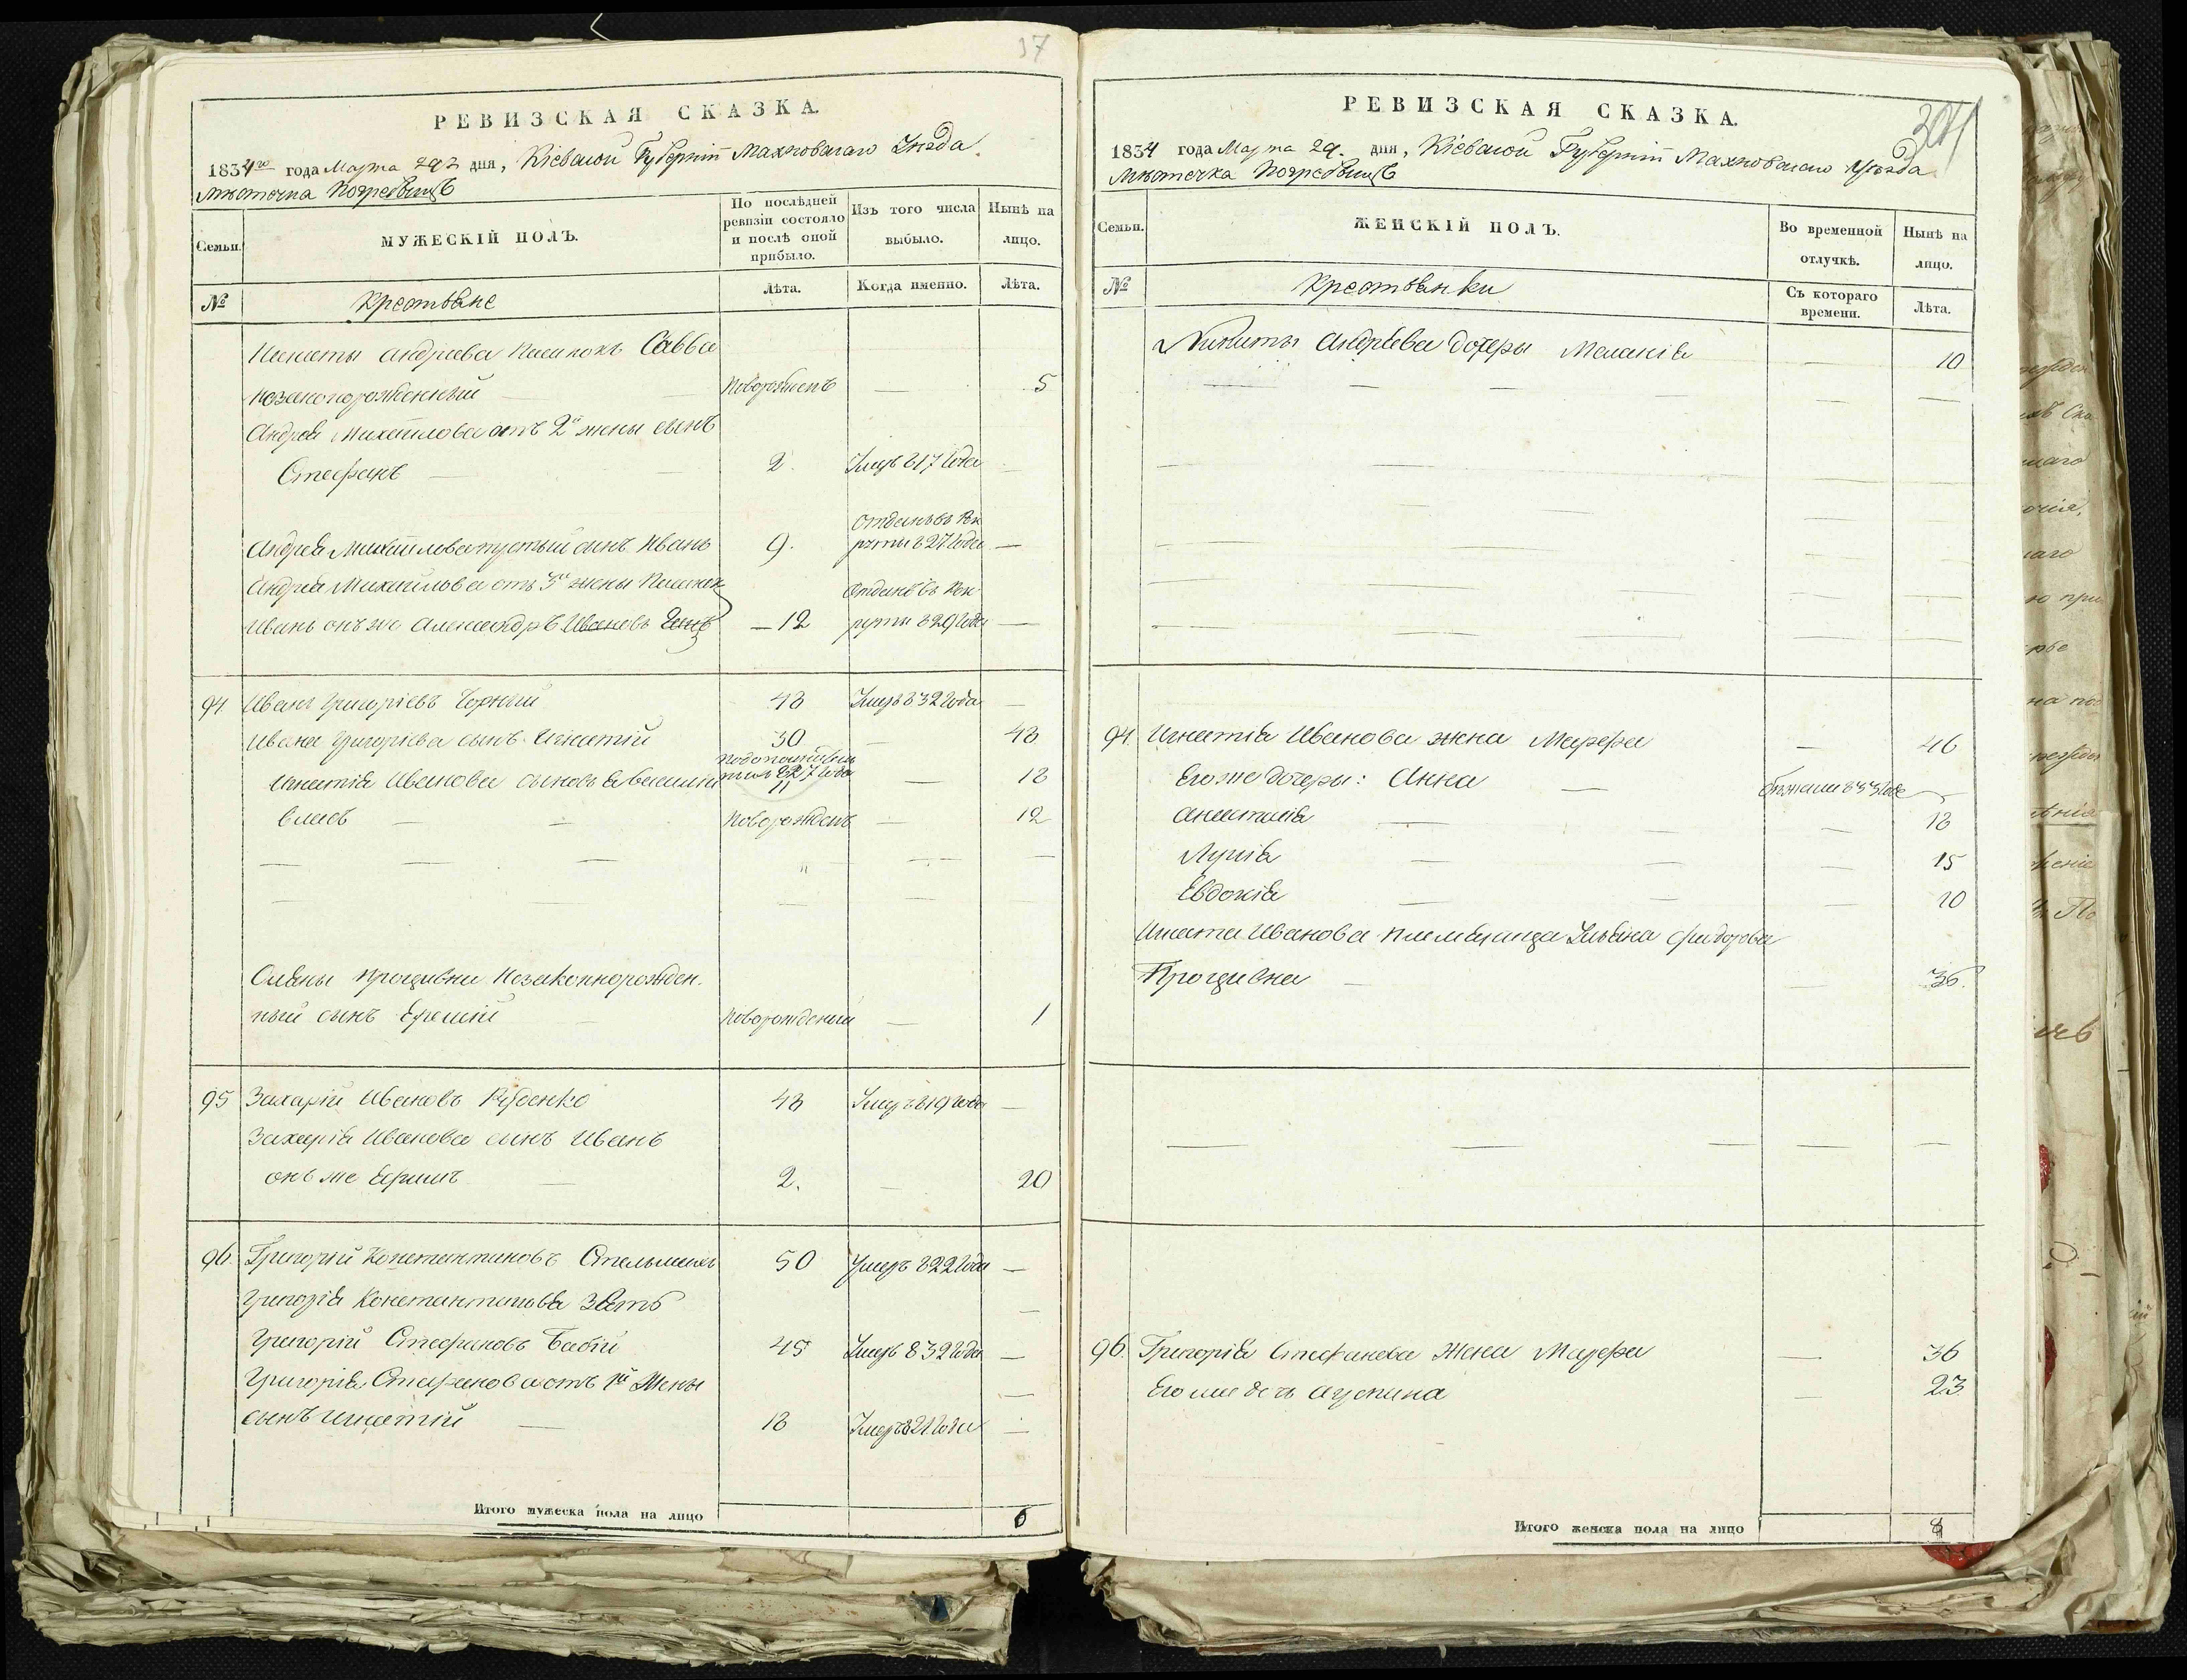 37
РЕВИЗСКАЯ СКАЗКА.
1834го года Марта 29 дня, Кіевской Губерніи Махновскаго Уѣзда
мѣстечка Погребищъ
Семьи.
МУЖЕСКІЙ ПОЛЪ.
По послѣдней ревизіи состояло и послѣ оной прибыло.
Изъ того числа выбыло.
Нынѣ на лицо.
№
Крестьяне
Лѣта.
Когда именно.
Лѣта.
Никиты Андреева Савва
незаконорожденный новорожденъ — 5
Андрея Михайлова отъ 2й жены сынъ
Стефанъ — 2. Умеръ 817 года
Отданъ въ Рек
Андрея Михайлова сынъ Иванъ 9. руты 827 года —
Андрея Михайлова отъ 3й жены Отданъ въ Рек
Иванъ онъ же Александръ Ивановъ — 12 руты 829 года —
94. Иванъ Григоріевъ Чорный 48 Умеръ 832 года —
Ивана Григоріева сынъ Игнатій 30 — 48
Игнатія Иванова сыновья Василій 827 года 11 — 18
Власъ — — новорожденъ — 12
Ульяны Процивны Незаконнорожден.
ный сынъ Еремій новорожденный — 1
95 Захарій Ивановъ Руденко 48 Умеръ 819 года —
Захарія Иванова сынъ Иванъ
онъ же Ефимъ — 2. — 20
96. Григорій Константиновъ Стельмахъ 50 Умеръ 822 года —
Григорія Константинова Зять —
Григорій Стефановъ Бабій 45 Умеръ 832 года —
Григорія Стефанова отъ 1й Жены —
сынъ Игнатій — 18 Умеръ 821 года —
Итого мужеска пола на лицо 6
РЕВИЗСКАЯ СКАЗКА.
1834 года Марта 29. дня, Кіевской Губерніи Махновскаго Уѣзда
мѣстечка Погребищъ
Семьи.
ЖЕНСКІЙ ПОЛЪ.
Во временной отлучкѣ.
Нынѣ на лицо.
№
Крестьянки
Съ котораго времени.
Лѣта.
Никиты Андреева дочеры Меланія — 10
94. Игнатія Иванова жена Марфа — 46
Его же дочеры: Анна — бѣжала 833 года —
Анастасія — — 18
Лукія — — — 15
Евдокія — — — 10
Игната Иванова племяница Ульяна Фидорова
Процивна — — 36.
96. Григорія Стефанова Жена Марфа — 36
Его же дочь Агрипина — 23
Итого женска пола на лицо 8